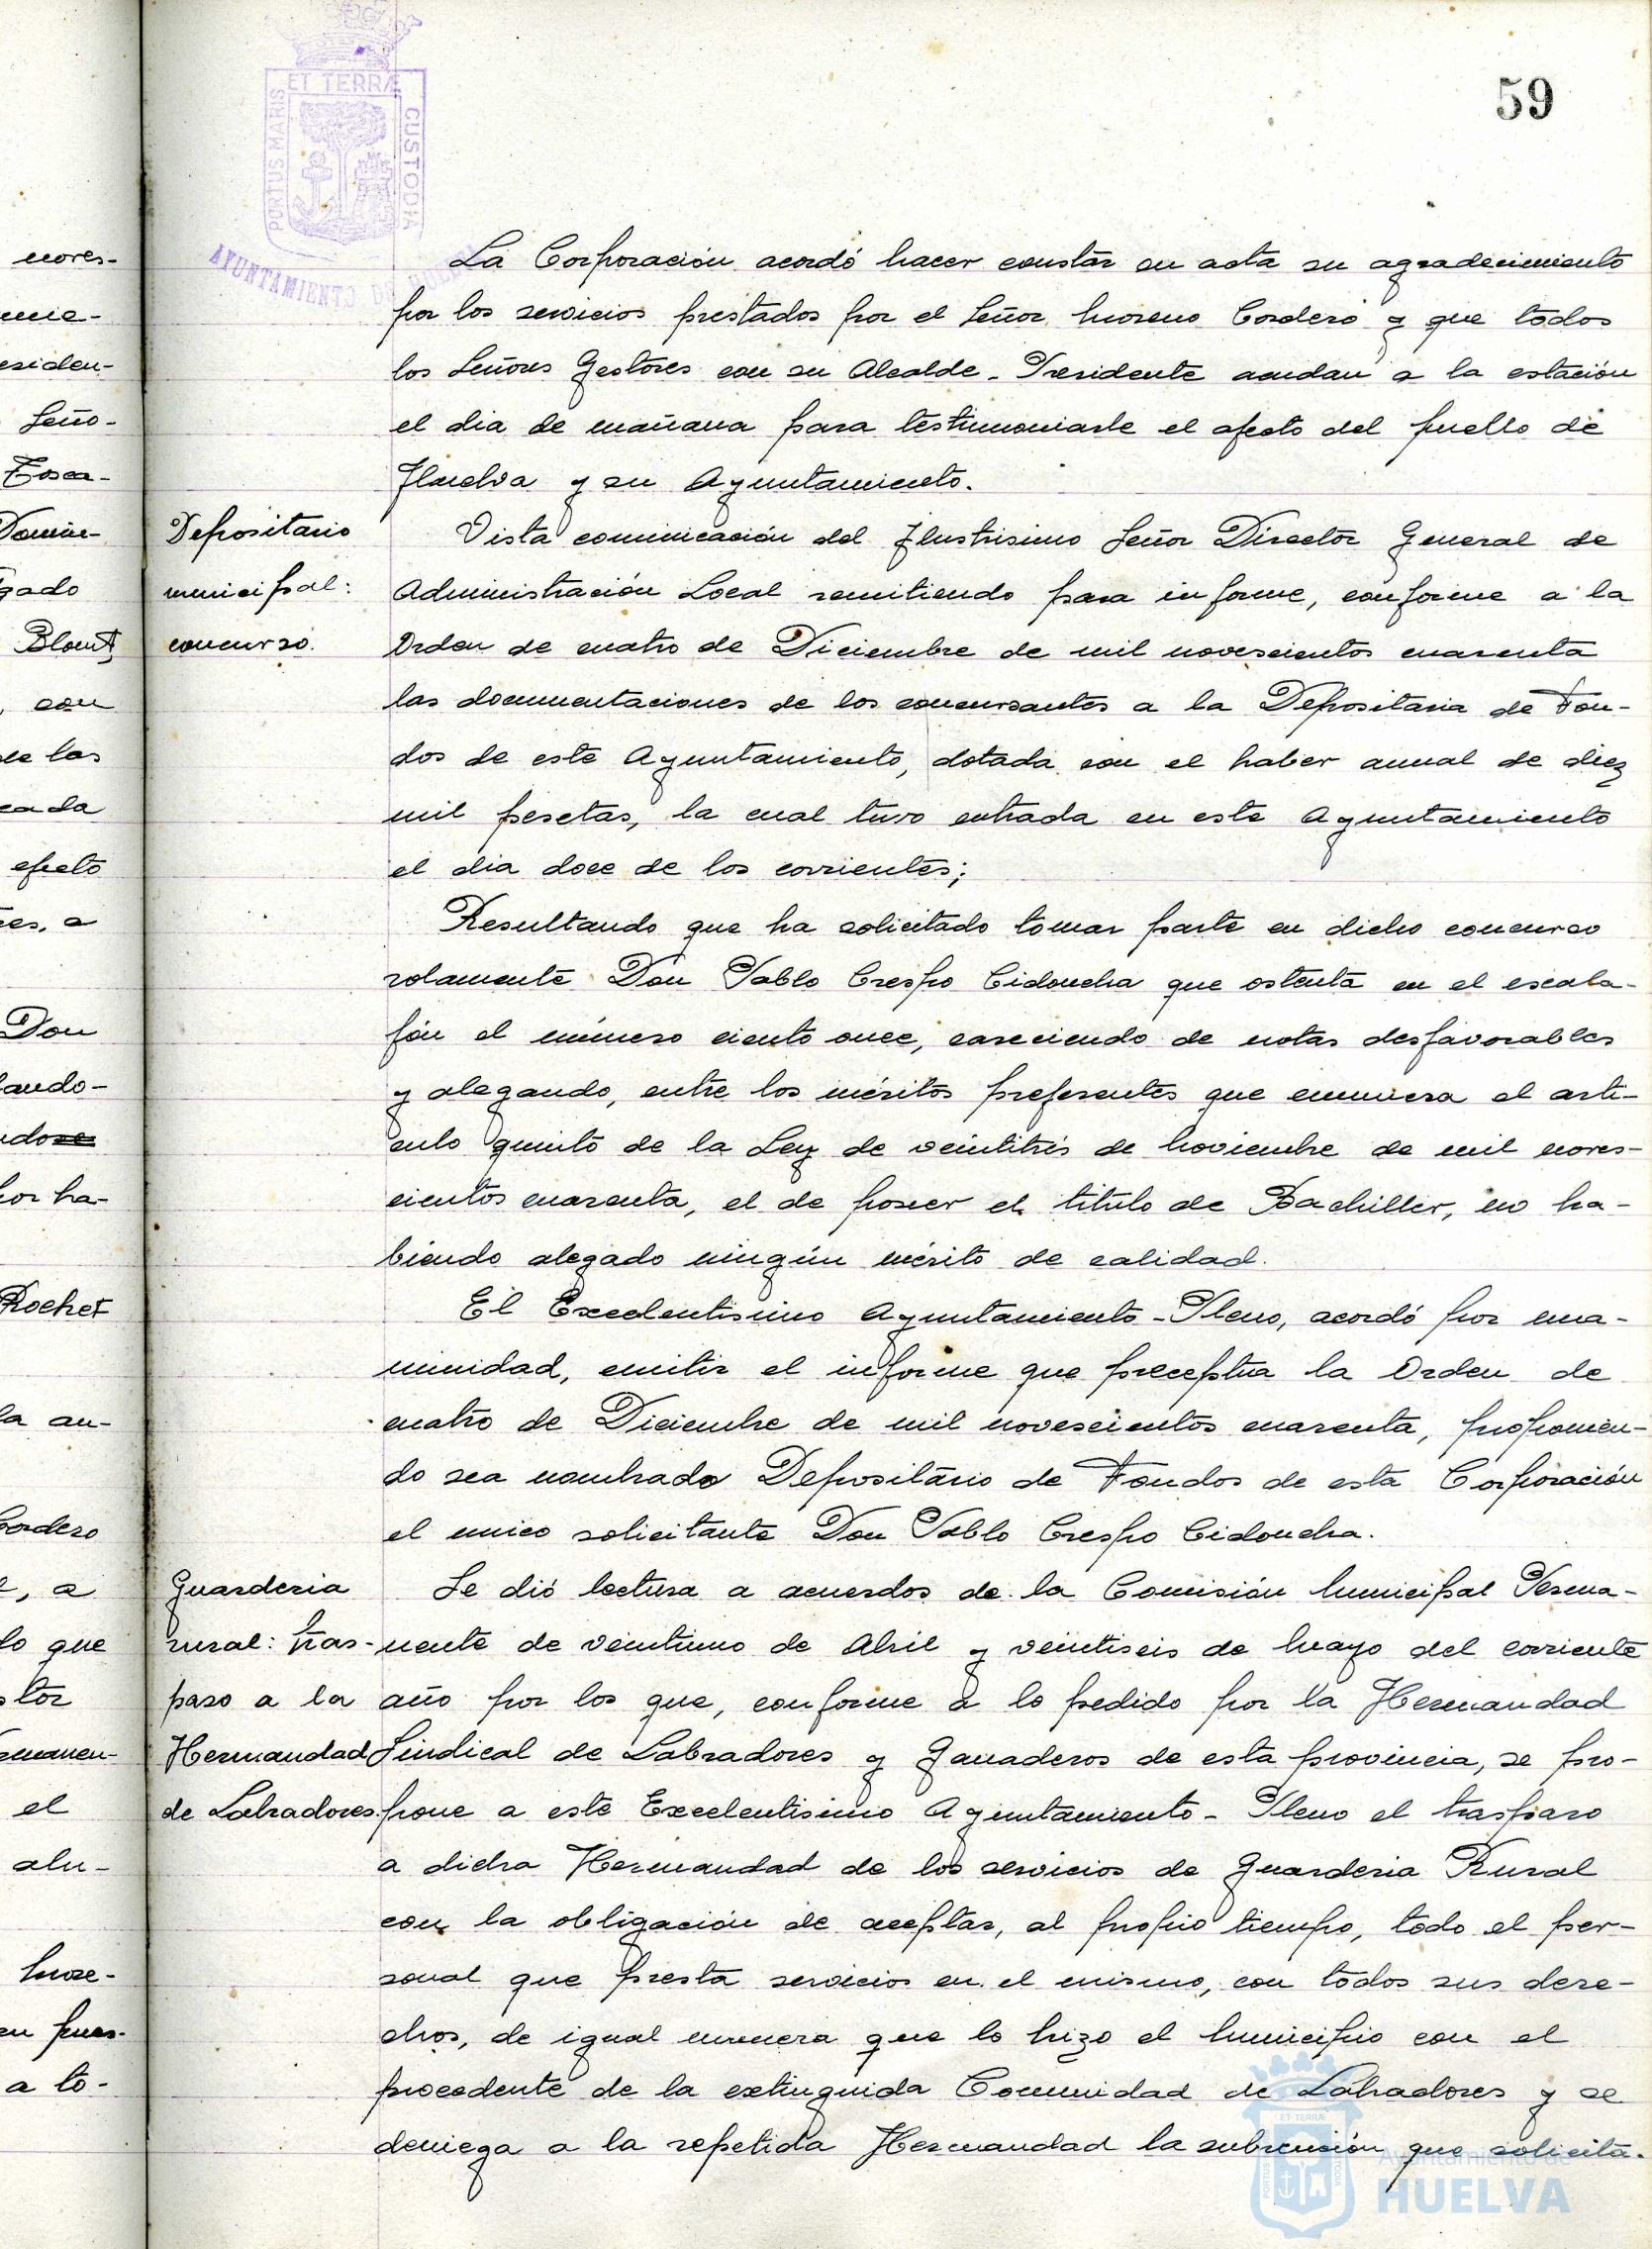 59
ET TERRÆ
PORTUS MARIS
CUSTODIA
AYUNTAMIENTO DE
La Corporación acordó hacer constar en acta su agradecimiento
por los servicios prestados por el Señor Moreno Cordero y que todos
los Señores Gestores con su Alcalde-Presidente acudan a la estación
el dia de mañana para testimoniarle el afecto del pueblo de
Huelva y su Ayuntamiento.
Depositario
municipal:
concurso.
Vista comunicación del Ilustrisimo Señor Director General de
Administración Local remitiendo para informe, conforme a la
Orden de cuatro de Diciembre de mil novescientos cuarenta
las documentaciones de los concursantes a la Depositaria de Fon-
dos de este Ayuntamiento, dotada con el haber anual de diez
mil pesetas, la cual tuvo entrada en este Ayuntamiento
el dia doce de los corrientes;
Resultando que ha solicitado tomar parte en dicho concurso
solamente Don Pablo Crespo Cidoncha que ostenta en el escala-
fón el número ciento once, careciendo de notas desfavorables
y alegando, entre los méritos preferentes que enumera el arti-
culo quinto de la Ley de veintitrés de Noviembre de mil noves-
cientos cuarenta, el de poseer el titulo de Bachiller, no ha-
biendo alegado ningún mérito de calidad.
El Excelentisimo Ayuntamiento-Pleno, acordó por una-
nimidad, emitir el informe que preceptua la Orden de
cuatro de Diciembre de mil novescientos cuarenta, proponien-
do sea nombrado Depositario de Fondos de esta Corporación
el unico solicitante Don Pablo Crespo Cidoncha.
Guarderia
rural: tras-
paso a la
Hermandad
de Labradores.
Se dió lectura a acuerdos de la Comisión Municipal Perma-
nente de veintiuno de Abril y veintiseis de Mayo del corriente
año por los que, conforme a lo pedido por la Hermandad
Sindical de Labradores y Ganaderos de esta provincia, se pro-
pone a este Excelentisimo Ayuntamiento-Pleno el traspaso
a dicha Hermandad de los servicios de Guarderia Rural
con la obligación de aceptar, al propio tiempo, todo el per-
sonal que presta servicios en el mismo, con todos sus dere-
chos, de igual manera que lo hizo el Municipio con el
procedente de la extinguida Comunidad de Labradores y se
deniega a la repetida Hermandad la subvención que solicita.
Ayuntamiento de
HUELVA